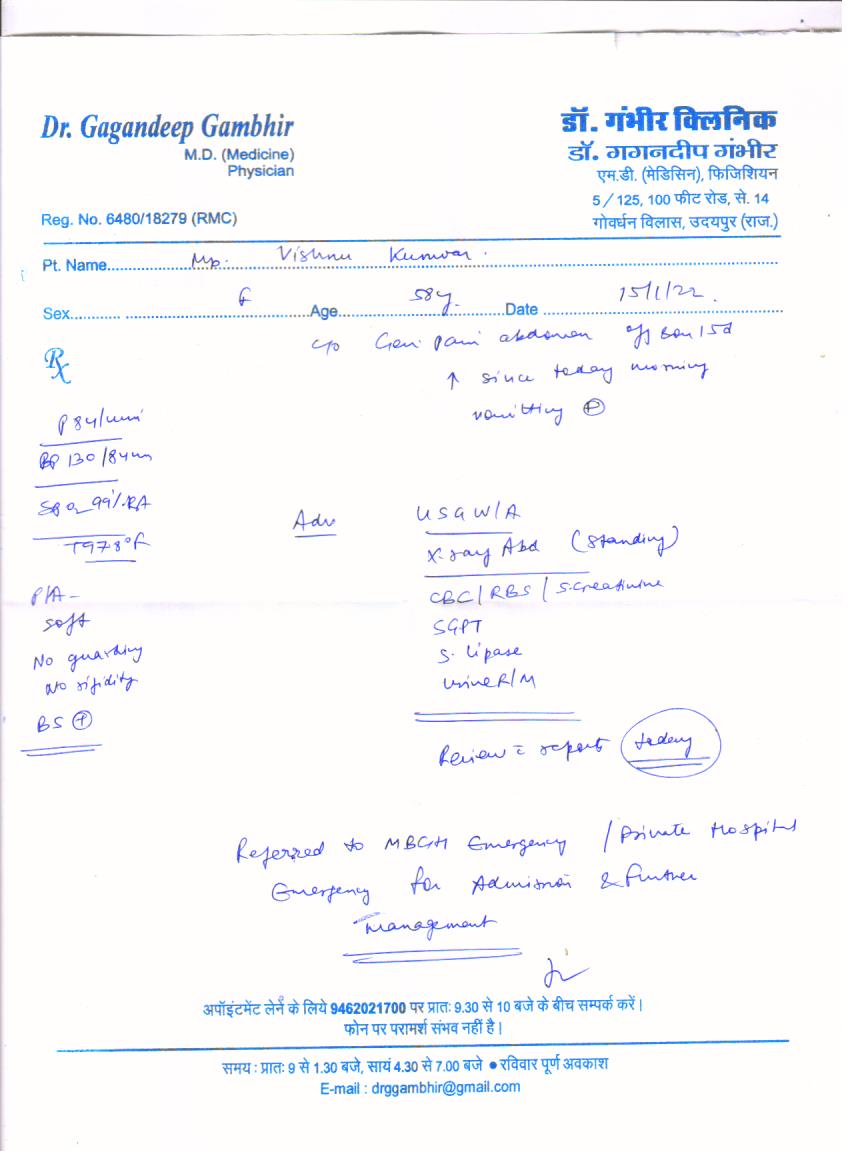 Dr. Gagandeep Gambhir
M.D. (Medicine)
Physician
Reg. No. 6480/18279 (RMC)
डॉ. गंभीर क्लिनिक
डॉ. गगनदीप गंभीर
एम.डी. (मेडिसिन), फिजिशियन
5 / 125, 100 फीट रोड, से. 14
गोवर्धन विलास, उदयपुर (राज.)
Pt. Name Vishnu Kunwar
Sex F Age 58y Date 15/1/22
c/o Gen. pain abdomen 15d
↑ since today morning
vomitting ⊕
P 84/min
BP 130/84
SpO2 99% RA
T 97.8°F
P/A -
soft
No guarding
No rigidity
BS ⊕
Adv
USG W/A
X-ray Abd (standing)
CBC / RBS / S. creatinine
SGPT
S. lipase
Urine R/M
Review c reports today
Referred to MBGH Emergency / Private Hospital
Emergency for Admission & Further
management
अपॉइंटमेंट लेने के लिये 9462021700 पर प्रातः 9.30 से 10 बजे के बीच सम्पर्क करें।
फोन पर परामर्श संभव नहीं है।
समय : प्रातः 9 से 1.30 बजे, सायं 4.30 से 7.00 बजे ● रविवार पूर्ण अवकाश
E-mail : drggambhir@gmail.com